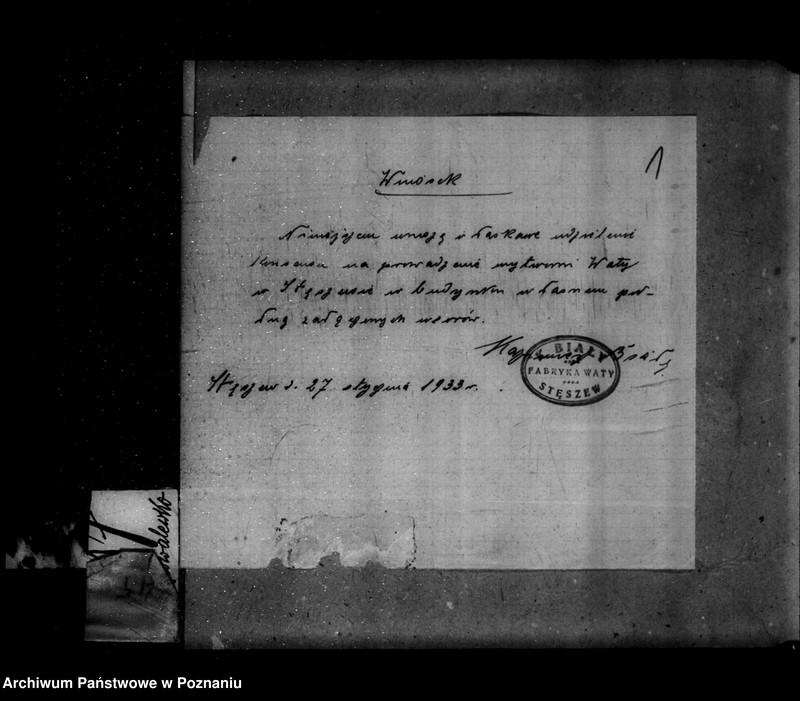 1
Wniosek
Niniejszem wnoszę o łaskawe udzielenie
konsensu na prowadzenie wytwórni Waty
w Stęszewie w budynku własnem po-
dług załączonych wzorów.
Kazimierz Biały
BIAŁY
FABRYKA WATY
STĘSZEW
Stęszew d. 27 stycznia 1933 r.
walewko
Archiwum Państwowe w Poznaniu